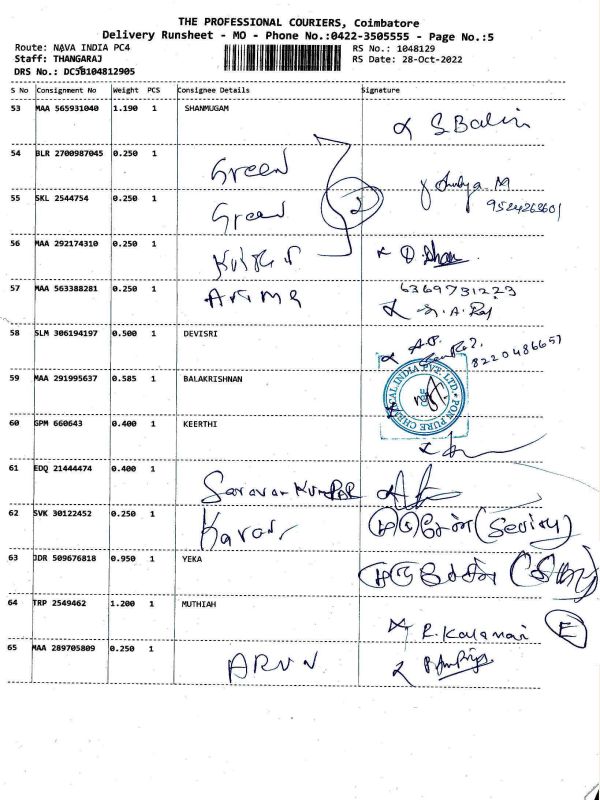 THE PROFESSIONAL COURIERS, Coimbatore
Delivery Runsheet - MO - Phone No.:0422-3505555 - Page No.:5
Route: NAVA INDIA PC4 RS No.: 1048129
Staff: THANGARAJ RS Date: 28-Oct-2022
DRS No.: DC5B104812905
S No Consignment No Weight PCS Consignee Details Signature
53 MAA 565931040 1.190 1 SHANMUGAM
54 BLR 2700987045 0.250 1 Green
55 SKL 2544754 0.250 1 Green 2
56 MAA 292174310 0.250 1
57 MAA 563388281 0.250 1 6369731223
58 SLM 306194197 0.500 1 DEVISRI 8220486657
59 MAA 291995637 0.585 1 BALAKRISHNAN PON PURE CHEMICAL INDIA PVT. LTD.
60 GPM 660643 0.400 1 KEERTHI
61 EDQ 21444474 0.400 1
62 SVK 30122452 0.250 1
63 JDR 509676818 0.950 1 YEKA
64 TRP 2549462 1.200 1 MUTHIAH E
65 MAA 289705809 0.250 1 ARUN